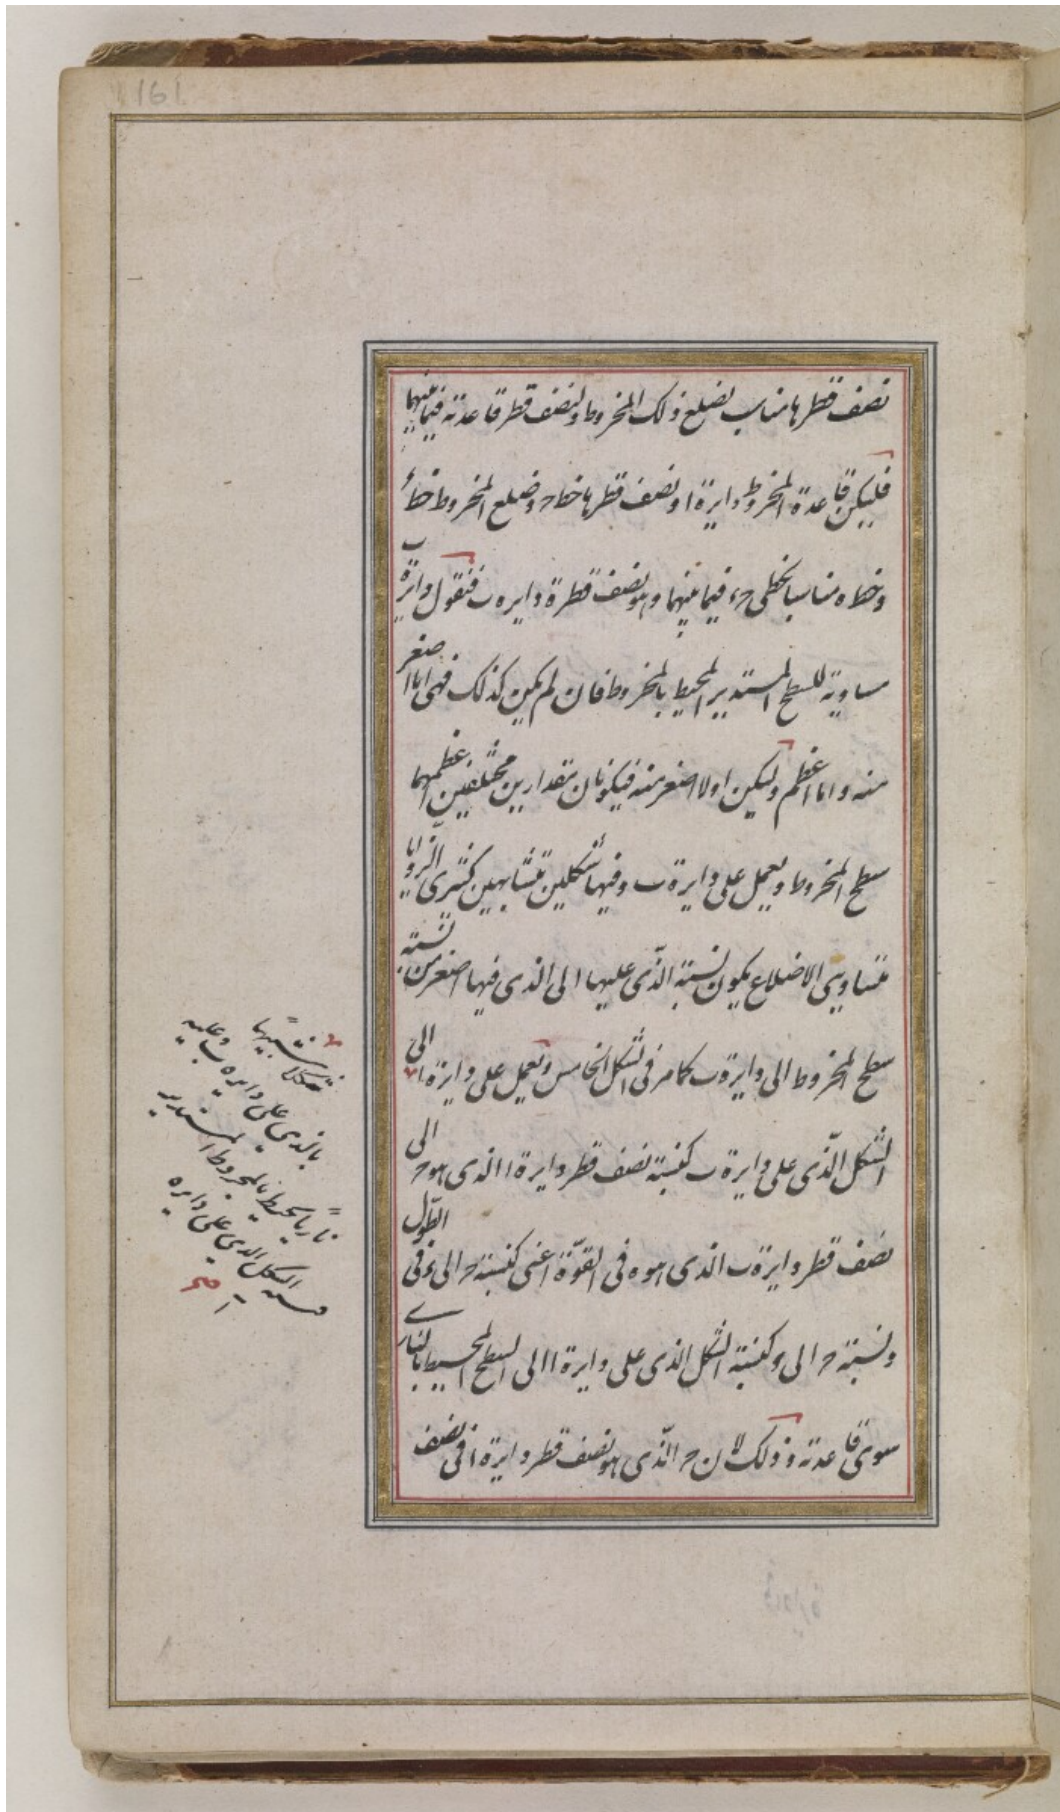 161
نصف قطرها مناسب لضلع ذلك المخروط ولنصف قطر قاعدته فيما بينهما
فليكن قاعدة المخروط دايرة ا ونصف قطرها خط ح وضلع المخروط خط ء
وخط ه مناسبا لخطى ح ء فيما بينهما وهو نصف قطر دايره ب فنقول دايرة ب
مساوية للسطح المستدير المحيط بالمخروط فان لم يكن كذلك فهى اما اصغر
منه واما اعظم وليكن اولا اصغر منه فيكونان مقدارين مختلفين اعظمهما
سطح المخروط ويعمل على دايرة ب وفيها شكلين متشابهين كثيرى الزوايا
متساويى الاضلاع يكون نسبة الذى عليها الى الذى فيها اصغر من نسبة
سطح المخروط الى دايرة ب كما مر فى الشكل الخامس ونعمل على دايرة ا الى
الشكل الذى على دايرة ب كنسبة نصف قطر دايرة ا الذى هو ح الى
نصف قطر دايرة ب الذى هو ه فى القوة اعنى كنسبة ح الى ء فى الطول
ونسبة ح الى ء كنسبة الشكل الذى على دايرة ا الى السطح المحيط بالنارى
سوى قاعدته وذلك لان ح الذى هو نصف قطر دايرة ا فى نصف
شكلا شبيها
بالذى على دايره ب وعليه
ناريا يحيط بالمخروط المستدير
فنسبة الشكل الذى على دايره
ا صح